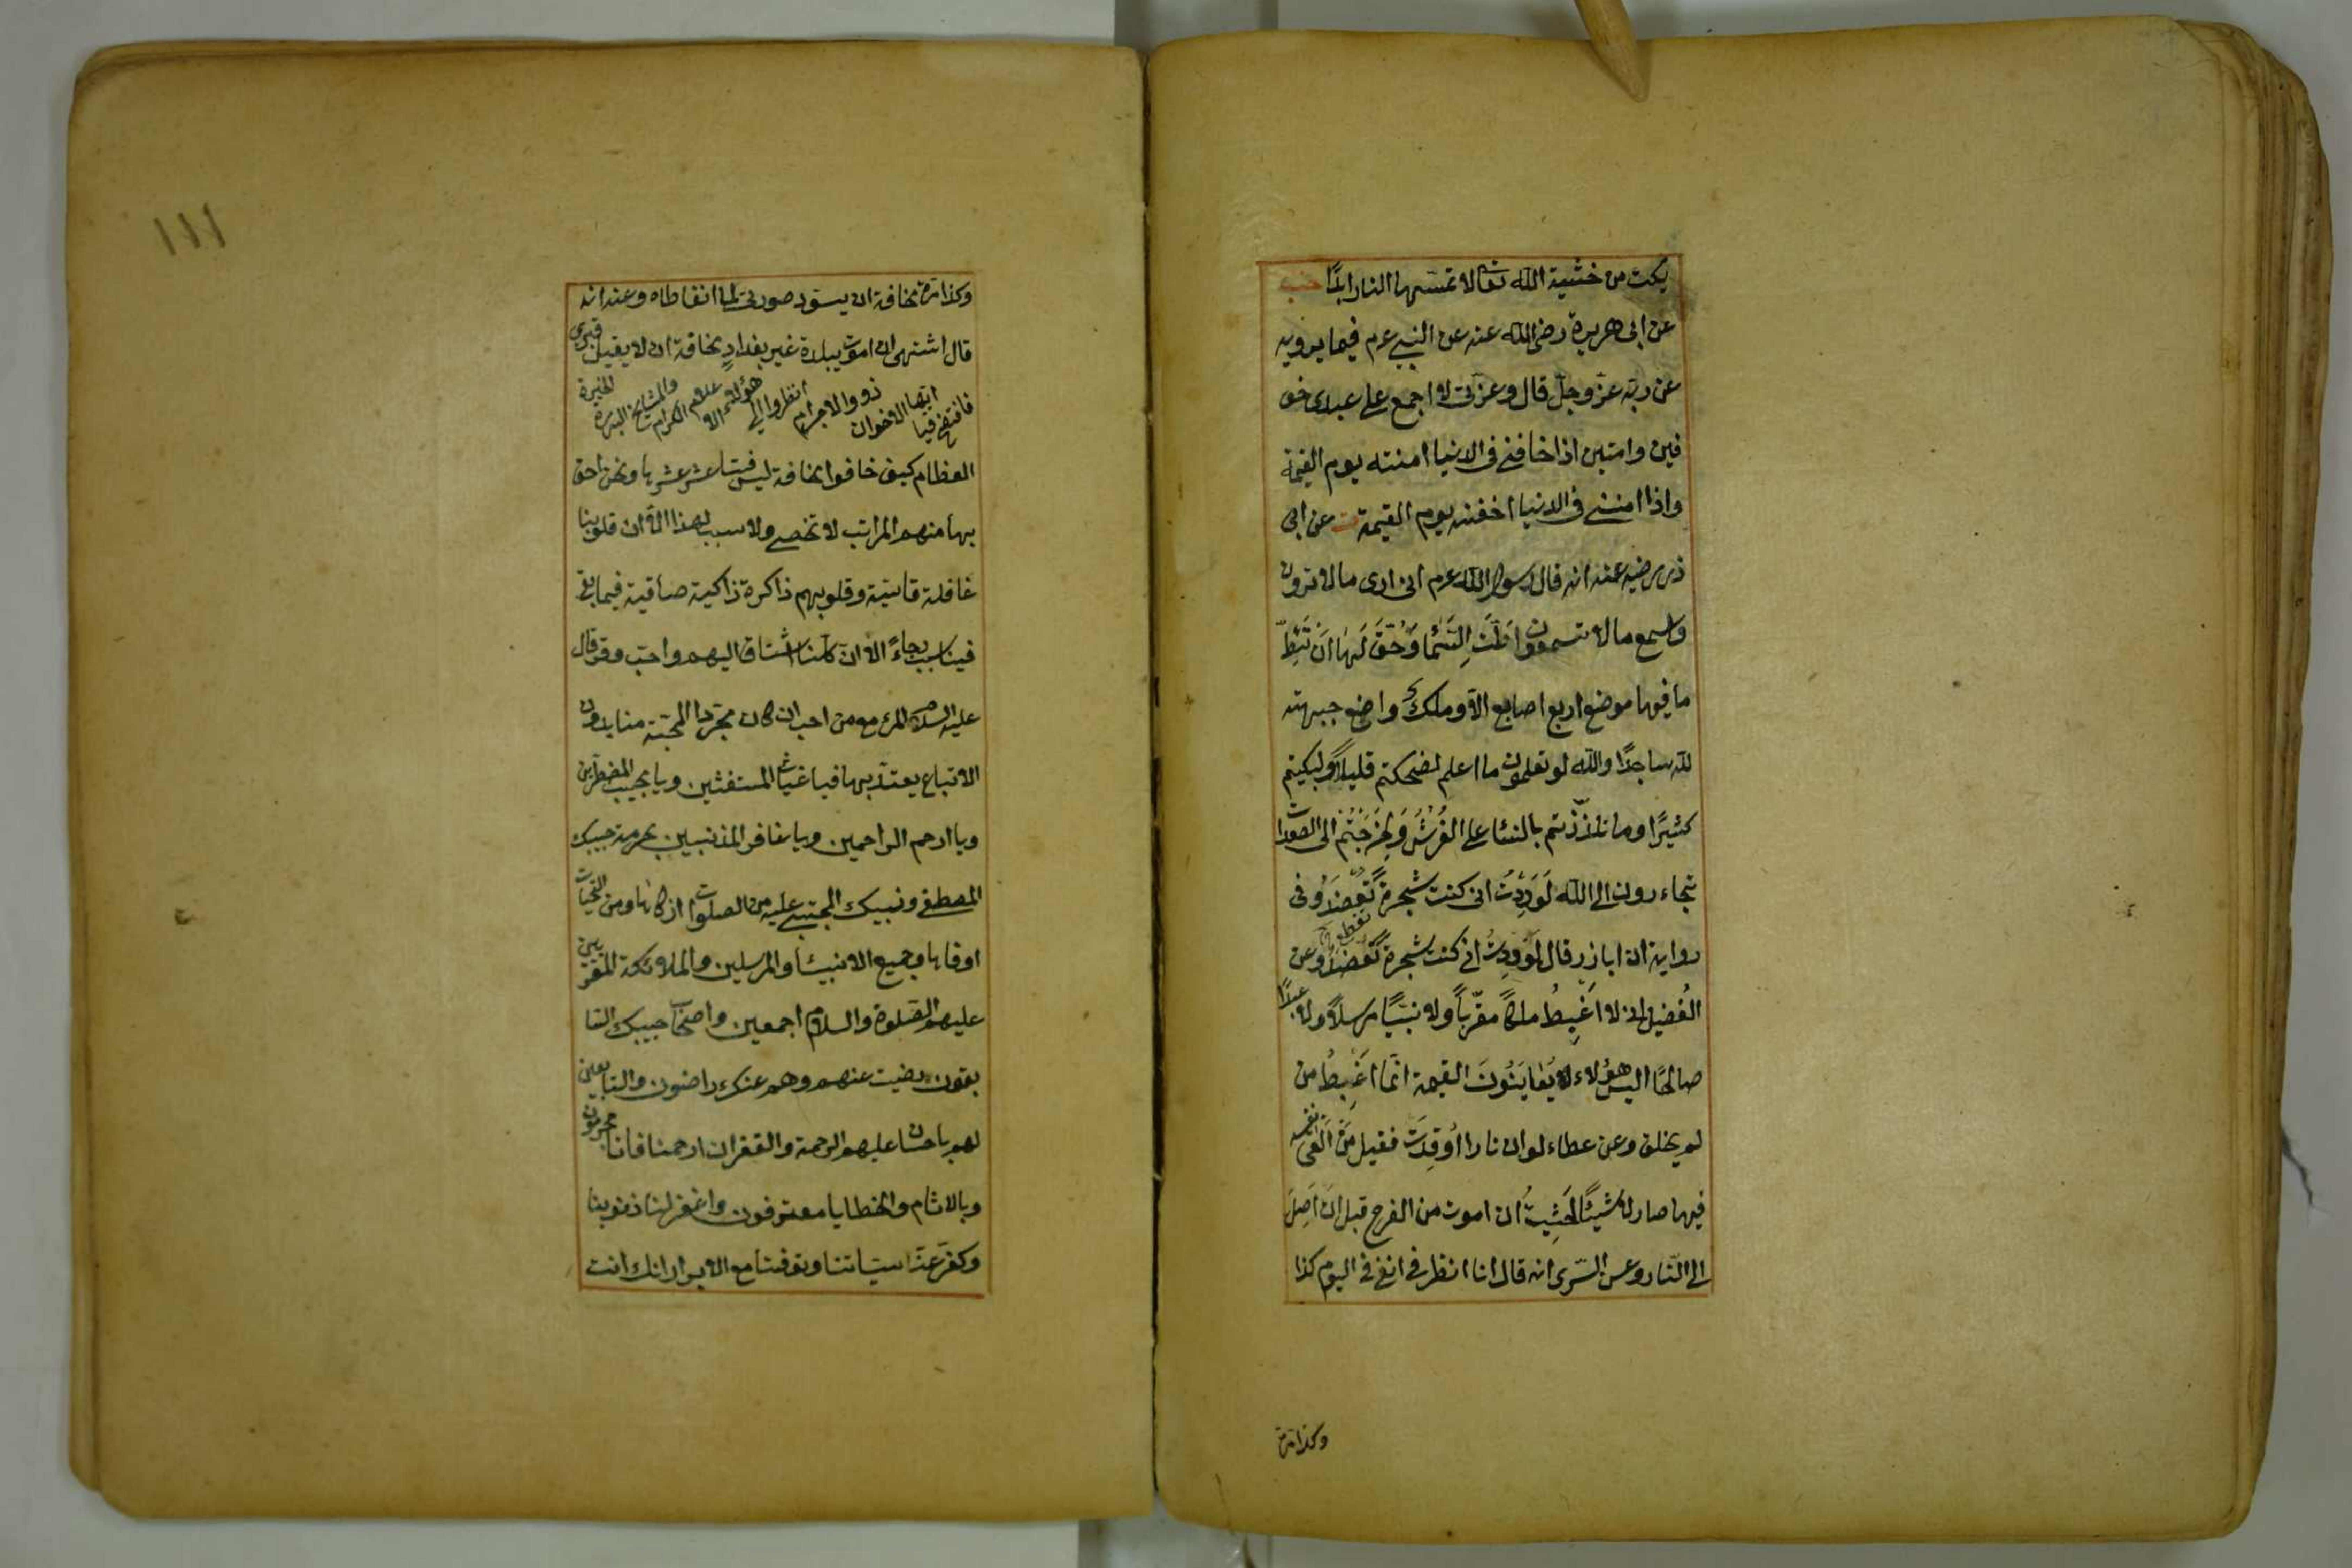 بكت من خشية الله تعالى لا تمسها النار ابدًا حب
عن ابى هريرة رضى الله عنه عن النبى عم فيما يرويه
عن ربه عزّ وجلّ قال وعزّتى لا اجمع على عبدى خو
فين وامنين اذا خافنى فى الدنيا امنته يوم القيمة
واذا امننى فى الدنيا اخفته يوم القيمة ت عن ابى
ذر رضى عنه انه قال رسول الله عم انى ارى ما لا ترون
واسمع ما لا تسمعون اطّت السّما وحُقّ لها ان تئطّ
ما فيها موضع اربع اصابع الا وملك واضع جبهته
لله ساجدًا والله لو تعلمون ما اعلم لضحكتم قليلاً ولبكيتم
كثيرًا وما تلذّذتم بالنسا على الفُرُش ولخرجتم الى الصعدات
تجاءرون الى الله لوددت انى كنت شجرة تعضد وفى
رواية ان اباذر قال لوددت انى كنت شجرة تعضد وعن
الفُضيل انى لا اغبِطُ ملكًا مقرّبًا ولا نبيًا مرسلاً ولا عبدًا
صالحًا اليس هؤلاء يعاينون القيمة انّما اغبِطُ من
لم يخلق وعن عطاء لو ان نارا اُوقِدَت فقيل من القى نفسه
فيها صار لا شيئًا لخشيت ان اموت من الفرح قبل ان اصل
الى النّار وعن السّرى انه قال انا انظر فى انفى فى اليوم كذا
وكذا مرة
١١١
وكذا مرة مخافة ان يسوّد صورتى لما اتعاطاه وعنه انه
قال اشتهى ان اموت ببلدة غير بغداد مخافة ان لا يقبل قبرى
فافتضح فيا ايّها الاخوان ذووا الاجرام انظروا الى هؤلاء الاعلام الكرام والمشايخ البررة الخيرة
العظام كيف خافوا مخافة ليس فينا عشر عشرها ونحن احق
بها منهم المراتب لا تحصى ولا سبب لهذا الاّ ان قلوبنا
غافلة قاسية وقلوبهم ذاكرة زاكية صافية فما بقى
فينا سبب رجاءً الا ان كلنا اشتاق اليهم واحب وقد قال
عليه السلام المرء مع من احب ان كان مجرّد المحبّة منا بدون
الاتباع يعتدّ بها فيا غياث المستغثين ويا مجيب المضطرّين
ويا ارحم الراحمين ويا غافر المذنبين بحرمة حبيبك
المصطفى ونبيك المجتبى عليه من الصلوات ازكاها ومن التحيات
اوفاها وجميع الانبيا والمرسلين والملائكة المقربين
عليهم الصلوة والسلام اجمعين واصحاب حبيبك السا
بقون رضيت عنهم وهم عنك راضون والتابعين
لهم باحسان عليهم الرحمة والغفران ارحمنا فانا مجرمون
وبالاثام والخطايا معترفون واغفر لنا ذنوبنا
وكفر عنّا سيّاتنا وتوفنا مع الابرار انك انت